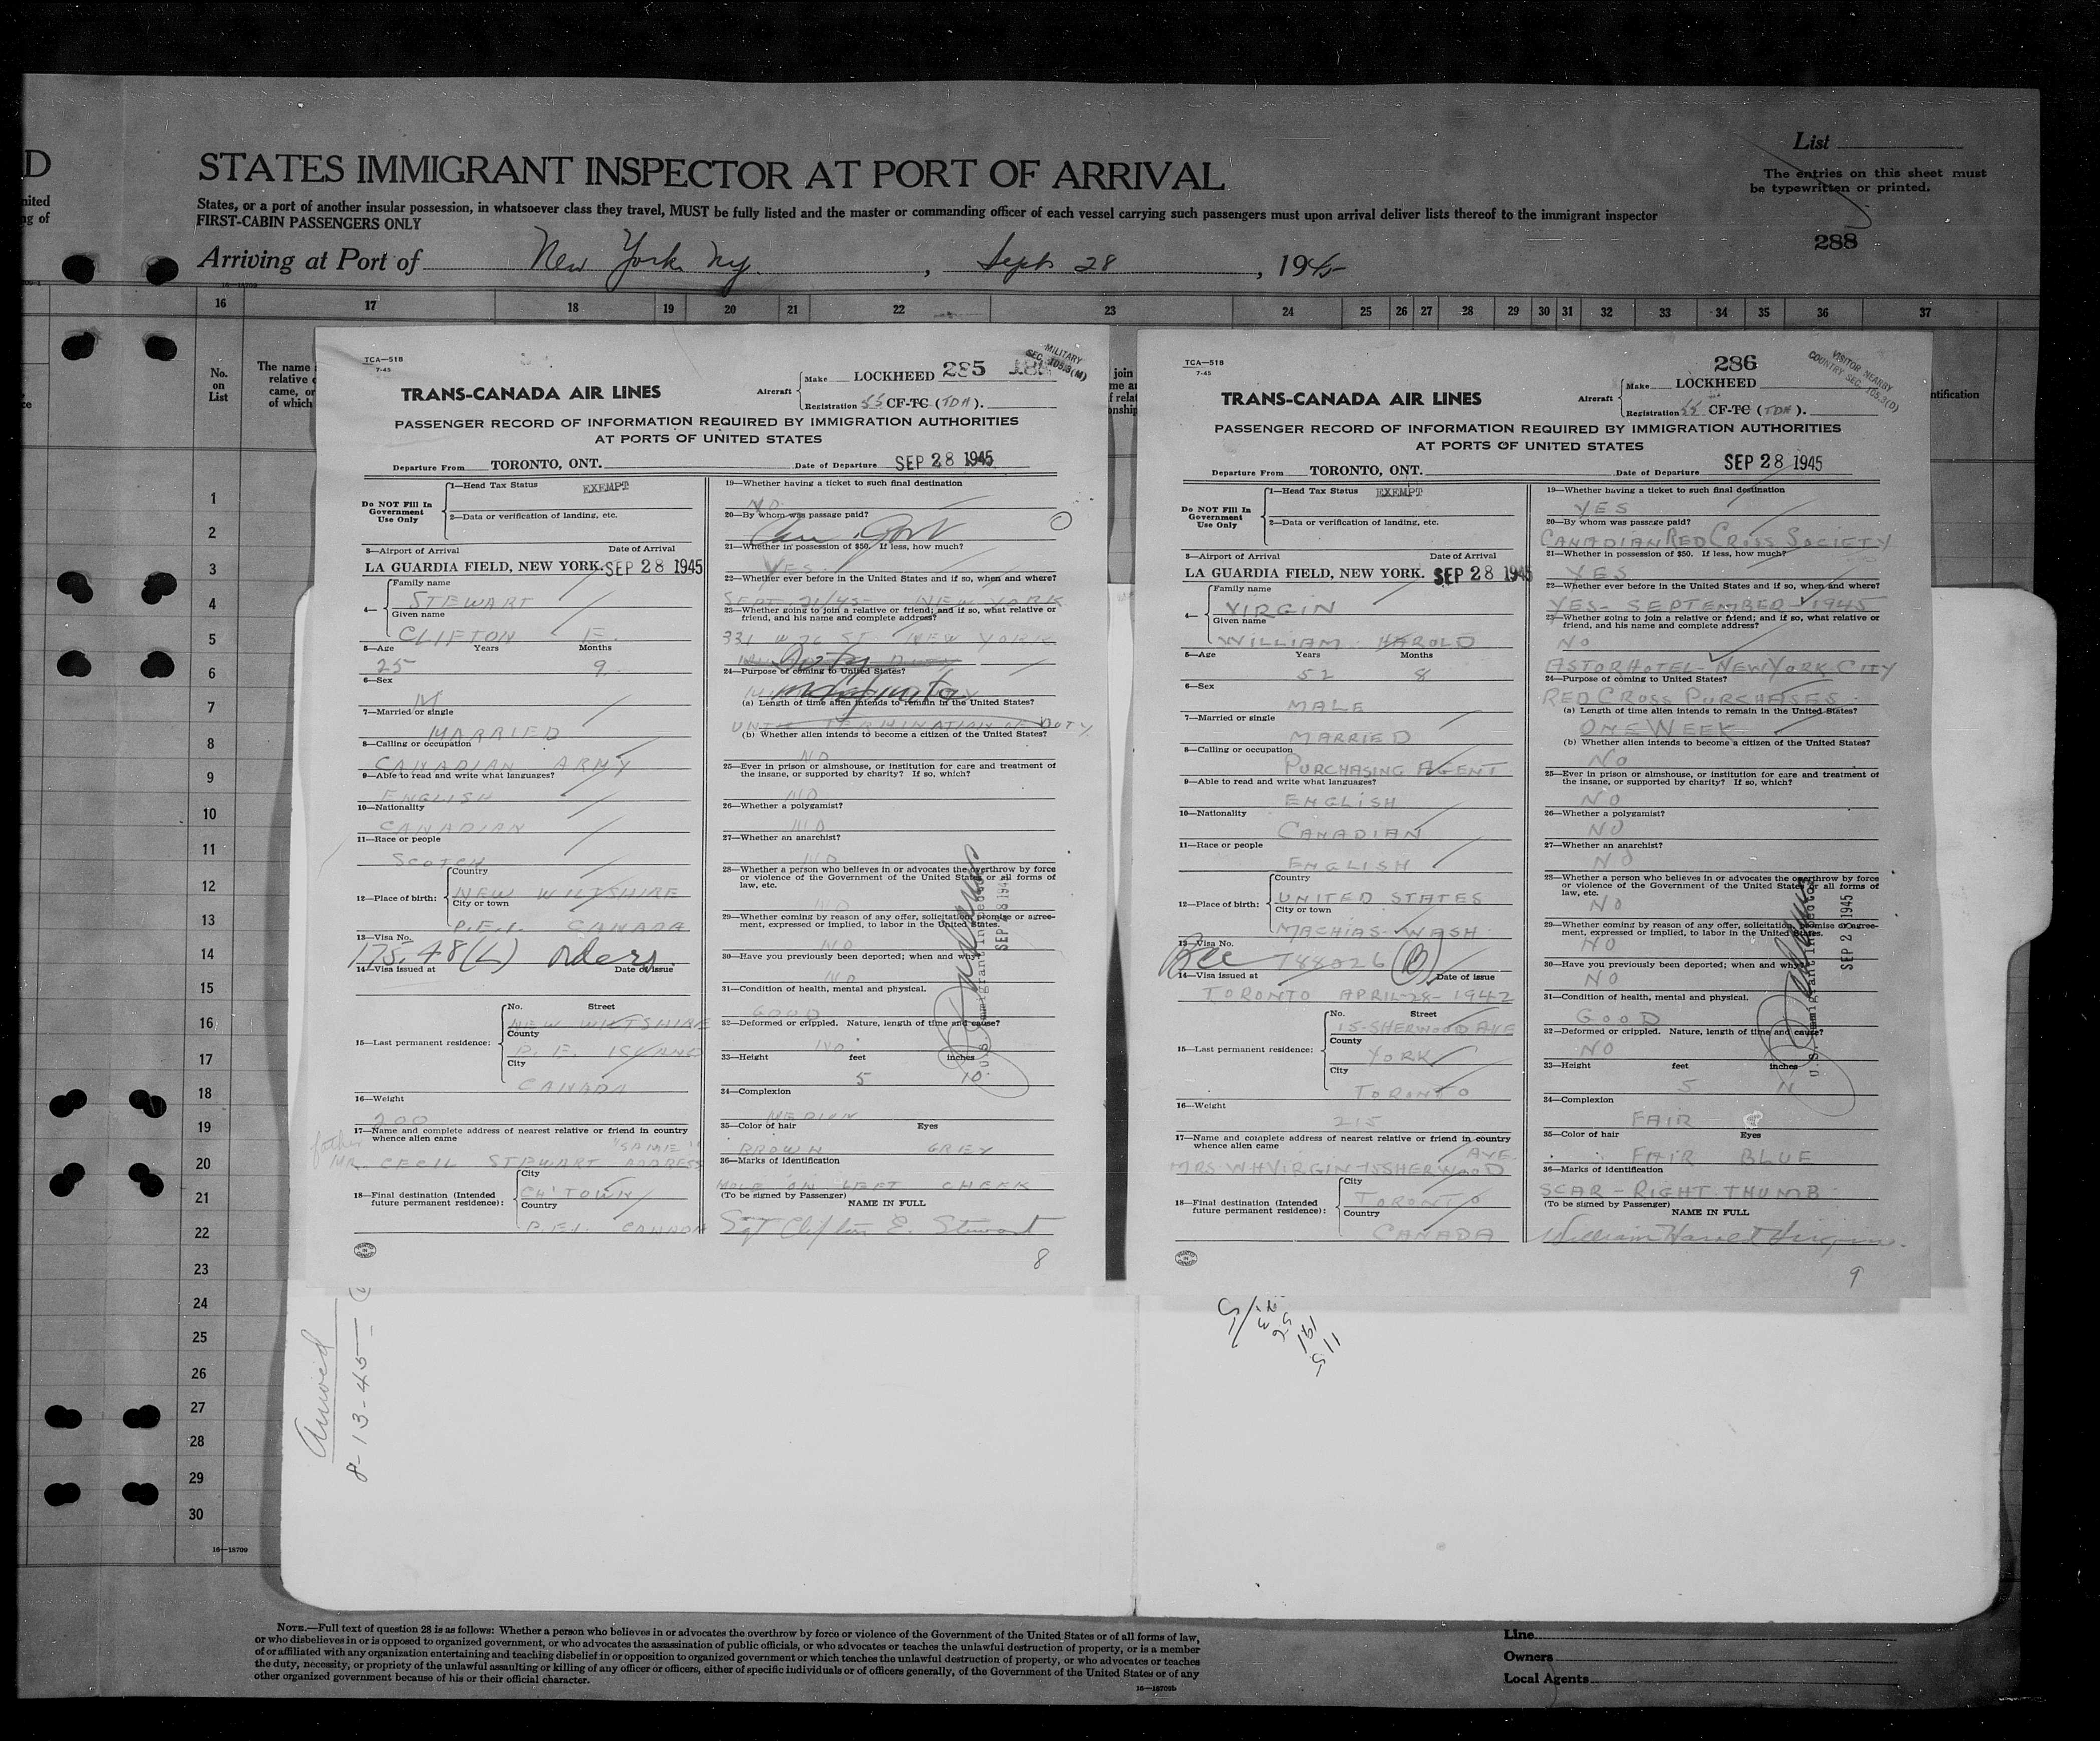 D
nited
ng of
STATES IMMIGRANT INSPECTOR AT PORT OF ARRIVAL
States, or a port of another insular possession, in whatsoever class they travel, MUST be fully listed and the master or commanding officer of each vessel carrying such passengers must upon arrival deliver lists thereof to the immigrant inspector
FIRST-CABIN PASSENGERS ONLY
List
The entries on this sheet must
be typewritten or printed.
288
Arriving at Port of New York Ny. , Sept 28 , 1945
16 17 18 19 20 21 22 23 24 25 26 27 28 29 30 31 32 33 34 35 36 37
No.
on
List
The name
relative
came, or
of which
1
2
3
4
5
6
7
8
9
10
11
12
13
14
15
16
17
18
19
20
21
22
23
24
25
26
27
28
29
30
16—18709
TCA—518
7-45
TRANS-CANADA AIR LINES
Aircraft
Make LOCKHEED 285
MILITARY
SEC. 105.3(M)
Registration 55 CF-TC (TDH).
PASSENGER RECORD OF INFORMATION REQUIRED BY IMMIGRATION AUTHORITIES
AT PORTS OF UNITED STATES
Departure From TORONTO, ONT. Date of Departure SEP 28 1945
Do NOT Fill In
Government
Use Only
1—Head Tax Status EXEMPT
2—Data or verification of landing, etc.
3—Airport of Arrival Date of Arrival
LA GUARDIA FIELD, NEW YORK. SEP 28 1945
4—
Family name
STEWART
Given name
CLIFTON E.
5—Age Years Months
25 9
6—Sex
M
7—Married or single
MARRIED
8—Calling or occupation
CANADIAN ARMY
9—Able to read and write what languages?
ENGLISH
10—Nationality
CANADIAN
11—Race or people
SCOTCH
12—Place of birth:
Country
NEW WILTSHIRE
City or town
P.E.I. CANADA
13—Visa No.
175.48(L) Orders
14—Visa issued at Date of issue
15—Last permanent residence:
No. Street
NEW WILTSHIRE
County
P. E. ISLAND
City
CANADA
16—Weight
200
17—Name and complete address of nearest relative or friend in country
whence alien came
father "SAME"
MR CECIL STEWART ADDRESS
18—Final destination (Intended
future permanent residence):
City
CH'TOWN
Country
P.E.I. CANADA
19—Whether having a ticket to such final destination
NO
20—By whom was passage paid?
Can. Govt
21—Whether in possession of $50. If less, how much?
YES
22—Whether ever before in the United States and if so, when and where?
SEPT. 21/45- NEW YORK
23—Whether going to join a relative or friend; and if so, what relative or
friend, and his name and complete address?
331 W 76 ST NEW YORK
24—Purpose of coming to United States?
(a) Length of time alien intends to remain in the United States?
UNTIL TERMINATION OF DUTY
(b) Whether alien intends to become a citizen of the United States?
NO
25—Ever in prison or almshouse, or institution for care and treatment of
the insane, or supported by charity? If so, which?
NO
26—Whether a polygamist?
NO
27—Whether an anarchist?
NO
28—Whether a person who believes in or advocates the overthrow by force
or violence of the Government of the United States or all forms of
law, etc.
NO
29—Whether coming by reason of any offer, solicitation, promise or agree-
ment, expressed or implied, to labor in the United States.
NO
30—Have you previously been deported; when and why?
NO
31—Condition of health, mental and physical.
GOOD
32—Deformed or crippled. Nature, length of time and cause?
NO
33—Height feet inches
5 10
34—Complexion
MEDIUM
35—Color of hair Eyes
BROWN GREY
36—Marks of identification
MOLE ON LEFT CHEEK
(To be signed by Passenger) NAME IN FULL
Sgt Clifton E. Stewart
8
U.S. Immigrant Inspector
SEP 28 1945
TCA—518
7-45
TRANS-CANADA AIR LINES
286
Aircraft
Make LOCKHEED
VISITOR NEARBY
COUNTRY SEC. 105.3(D)
Registration 55 CF-TC (TDH).
PASSENGER RECORD OF INFORMATION REQUIRED BY IMMIGRATION AUTHORITIES
AT PORTS OF UNITED STATES
Departure From TORONTO, ONT. Date of Departure SEP 28 1945
Do NOT Fill In
Government
Use Only
1—Head Tax Status EXEMPT
2—Data or verification of landing, etc.
3—Airport of Arrival Date of Arrival
LA GUARDIA FIELD, NEW YORK. SEP 28 1945
4—
Family name
VIRGIN
Given name
WILLIAM HAROLD
5—Age Years Months
52 8
6—Sex
MALE
7—Married or single
MARRIED
8—Calling or occupation
PURCHASING AGENT
9—Able to read and write what languages?
ENGLISH
10—Nationality
CANADIAN
11—Race or people
ENGLISH
12—Place of birth:
Country
UNITED STATES
City or town
MACHIAS- WASH.
13—Visa No.
BCC 788026 (B)
14—Visa issued at Date of issue
TORONTO APRIL-28-1942
15—Last permanent residence:
No. Street
15-SHERWOOD AVE
County
YORK
City
TORONTO
16—Weight
215
17—Name and complete address of nearest relative or friend in country
whence alien came
AVE.
MRS WH VIRGIN 15 SHERWOOD
18—Final destination (Intended
future permanent residence):
City
TORONTO
Country
CANADA
19—Whether having a ticket to such final destination
YES
20—By whom was passage paid?
CANADIAN RED CROSS SOCIETY
21—Whether in possession of $50. If less, how much?
YES
22—Whether ever before in the United States and if so, when and where?
YES- SEPTEMBER-1945
23—Whether going to join a relative or friend; and if so, what relative or
friend, and his name and complete address?
NO
ASTOR HOTEL- NEW YORK CITY
24—Purpose of coming to United States?
RED CROSS PURCHASES
(a) Length of time alien intends to remain in the United States?
ONE WEEK
(b) Whether alien intends to become a citizen of the United States?
NO
25—Ever in prison or almshouse, or institution for care and treatment of
the insane, or supported by charity? If so, which?
NO
26—Whether a polygamist?
NO
27—Whether an anarchist?
NO
28—Whether a person who believes in or advocates the overthrow by force
or violence of the Government of the United States or all forms of
law, etc.
NO
29—Whether coming by reason of any offer, solicitation, promise or agree-
ment, expressed or implied, to labor in the United States.
NO
30—Have you previously been deported; when and why?
NO
31—Condition of health, mental and physical.
GOOD
32—Deformed or crippled. Nature, length of time and cause?
NO
33—Height feet inches
5 11
34—Complexion
FAIR
35—Color of hair Eyes
FAIR BLUE
36—Marks of identification
SCAR - RIGHT THUMB
(To be signed by Passenger) NAME IN FULL
William Harold Virgin
9
U.S. Immigrant Inspector
SEP 2 1945
Arrived
8-13-45
NOTE.—Full text of question 28 is as follows: Whether a person who believes in or advocates the overthrow by force or violence of the Government of the United States or of all forms of law,
or who disbelieves in or is opposed to organized government, or who advocates the assassination of public officials, or who advocates or teaches the unlawful destruction of property, or is a member
of or affiliated with any organization entertaining and teaching disbelief in or opposition to organized government or which teaches the unlawful destruction of property, or who advocates or teaches
the duty, necessity, or propriety of the unlawful assaulting or killing of any officer or officers, either of specific individuals or of officers generally, of the Government of the United States or of any
other organized government because of his or their official character.
16—18709b
Line
Owners
Local Agents